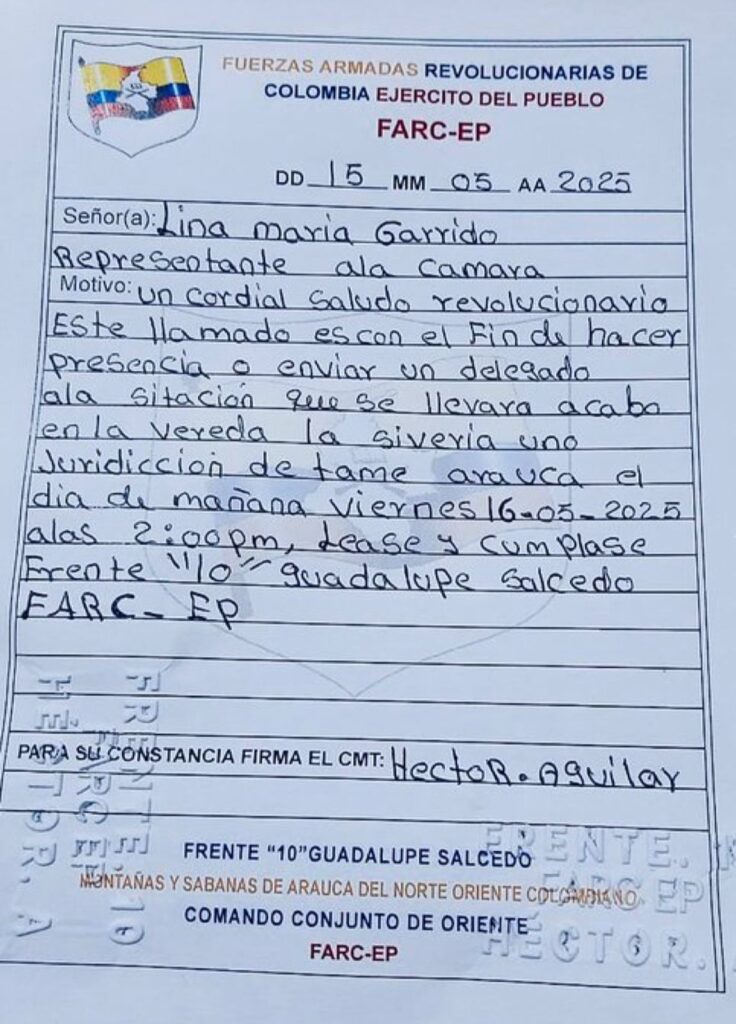 FUERZAS ARMADAS REVOLUCIONARIAS DE
COLOMBIA EJERCITO DEL PUEBLO
FARC-EP
DD 15 MM 05 AA 2025
Señor(a): Lina maria Garrido
Representante ala camara
Motivo: un cordial saludo revolucionario
Este llamado es con el Fin de hacer
presencia o enviar un delegado
ala sitación que se llevara acabo
en la vereda la siveria uno
Juridiccion de tame arauca el
dia de mañana viernes 16-05-2025
alas 2:00pm, Lease y cumplase
Frente "10" guadalupe salcedo
FARC-EP
PARA SU CONSTANCIA FIRMA EL CMT: HectoR. Aguilar
FRENTE "10"GUADALUPE SALCEDO
MONTAÑAS Y SABANAS DE ARAUCA DEL NORTE ORIENTE COLOMBIANO
COMANDO CONJUNTO DE ORIENTE
FARC-EP
FRENTE. 10
FARC EP
HÉCTOR. A
FRENTE.
FARC EP
HÉCTOR.